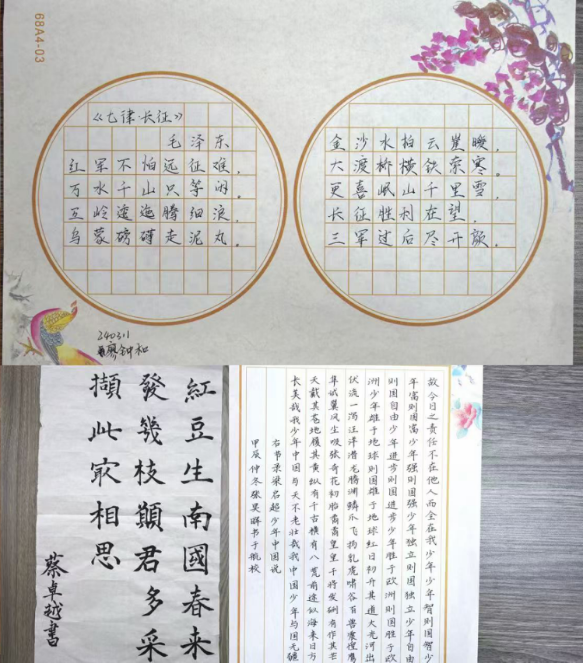 68A4-03
《七律·长征》
毛泽东
红军不怕远征难，
万水千山只等闲。
五岭逶迤腾细浪，
乌蒙磅礴走泥丸。
金沙水拍云崖暖，
大渡桥横铁索寒。
更喜岷山千里雪，
长征胜利在望，
三军过后尽开颜。
240311
廖钟和
紅豆生南國春来
發幾枝願君多采
擷此㝡相思
蔡卓越書
故今日之责任不在他人而全在我少年少年智则国智少
年富则国富少年强则国强少年独立则国独立少年自由
则国自由少年进步则国进步少年胜于欧洲则国胜于欧
洲少年雄于地球则国雄于地球红日初升其道大光河出
伏流一泻汪洋潜龙腾渊鳞爪飞扬乳虎啸谷百兽震惶鹰
隼试翼风尘吸张奇花初胎矞矞皇皇干将发硎有作其芒
天戴其苍地履其黄纵有千古横有八荒前途似海来日方
长美哉我少年中国与天不老壮哉我中国少年与国无疆
右节录梁启超少年中国说
甲辰仲冬张昊书于航校